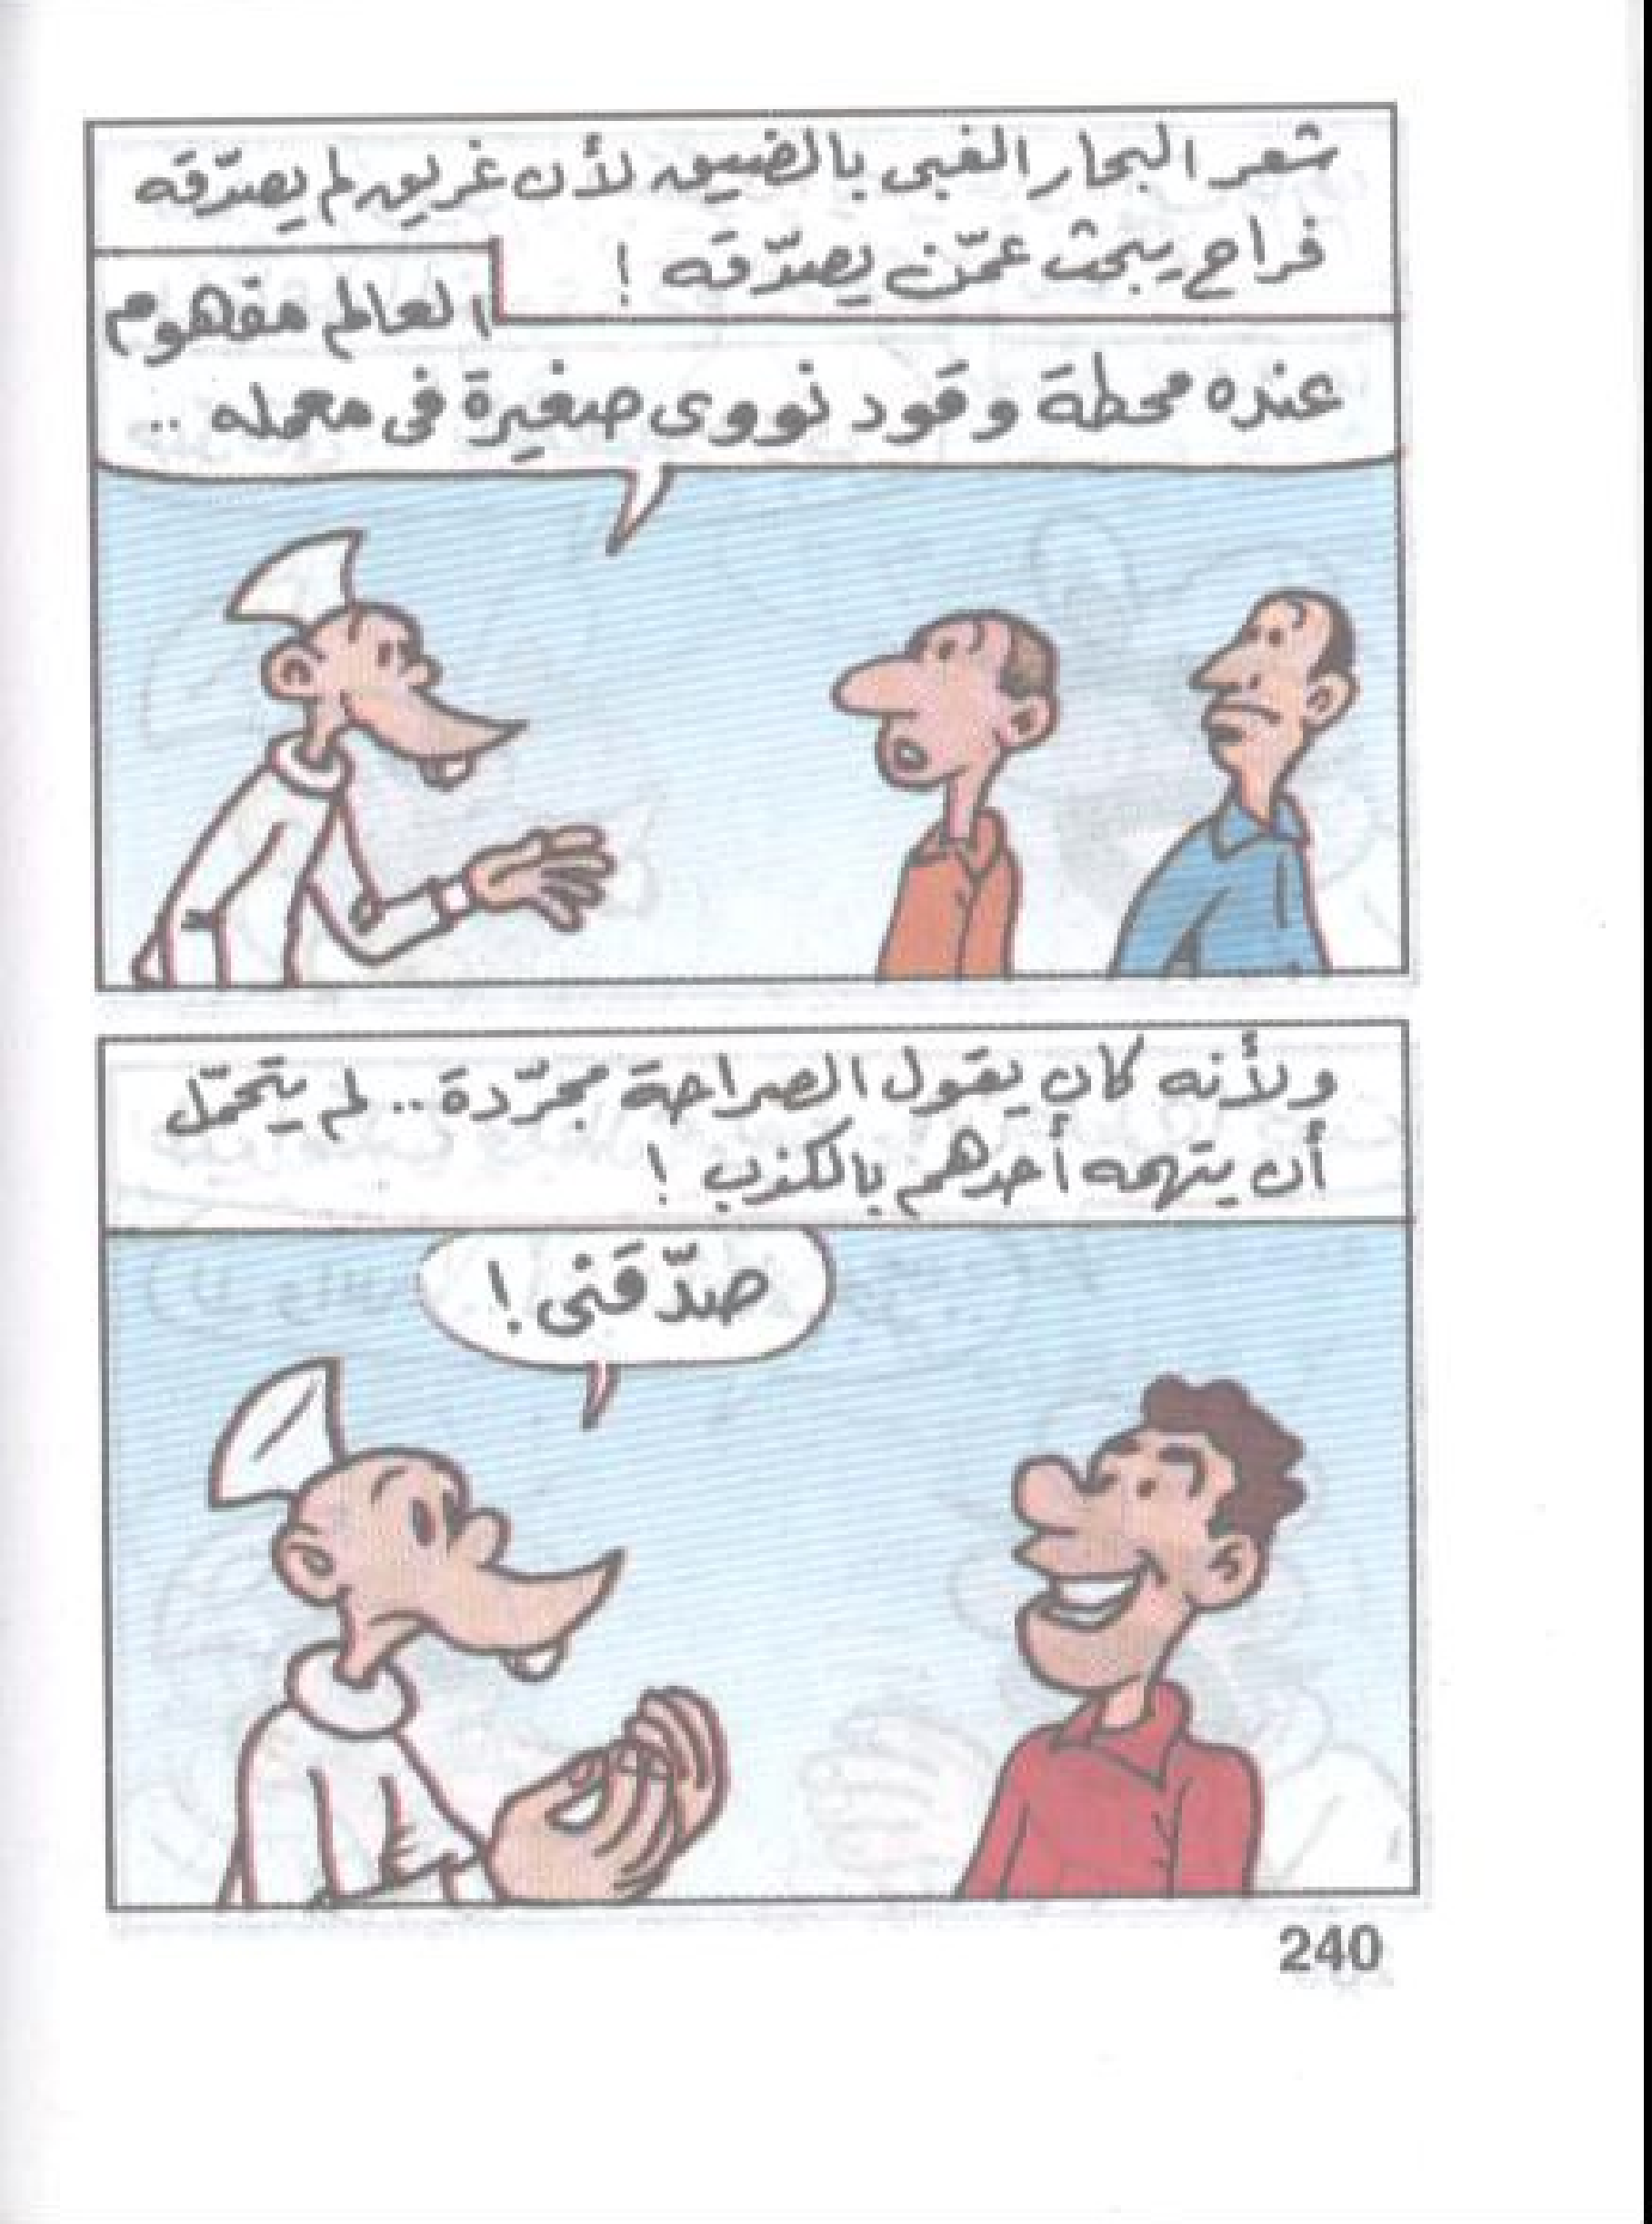 شعر البحار الغبى بالضيق لأن غريق لم يصدّقه
فراح يبحث عمّن يصدّقه !
العالم مفهوم
عنده محطة وقود نووى صغيرة فى معمله ..
ولأنه كان يقول الصراحة مجرّدة .. لم يتحمّل
أن يتهمه أحدهم بالكذب !
صدّقنى !
240